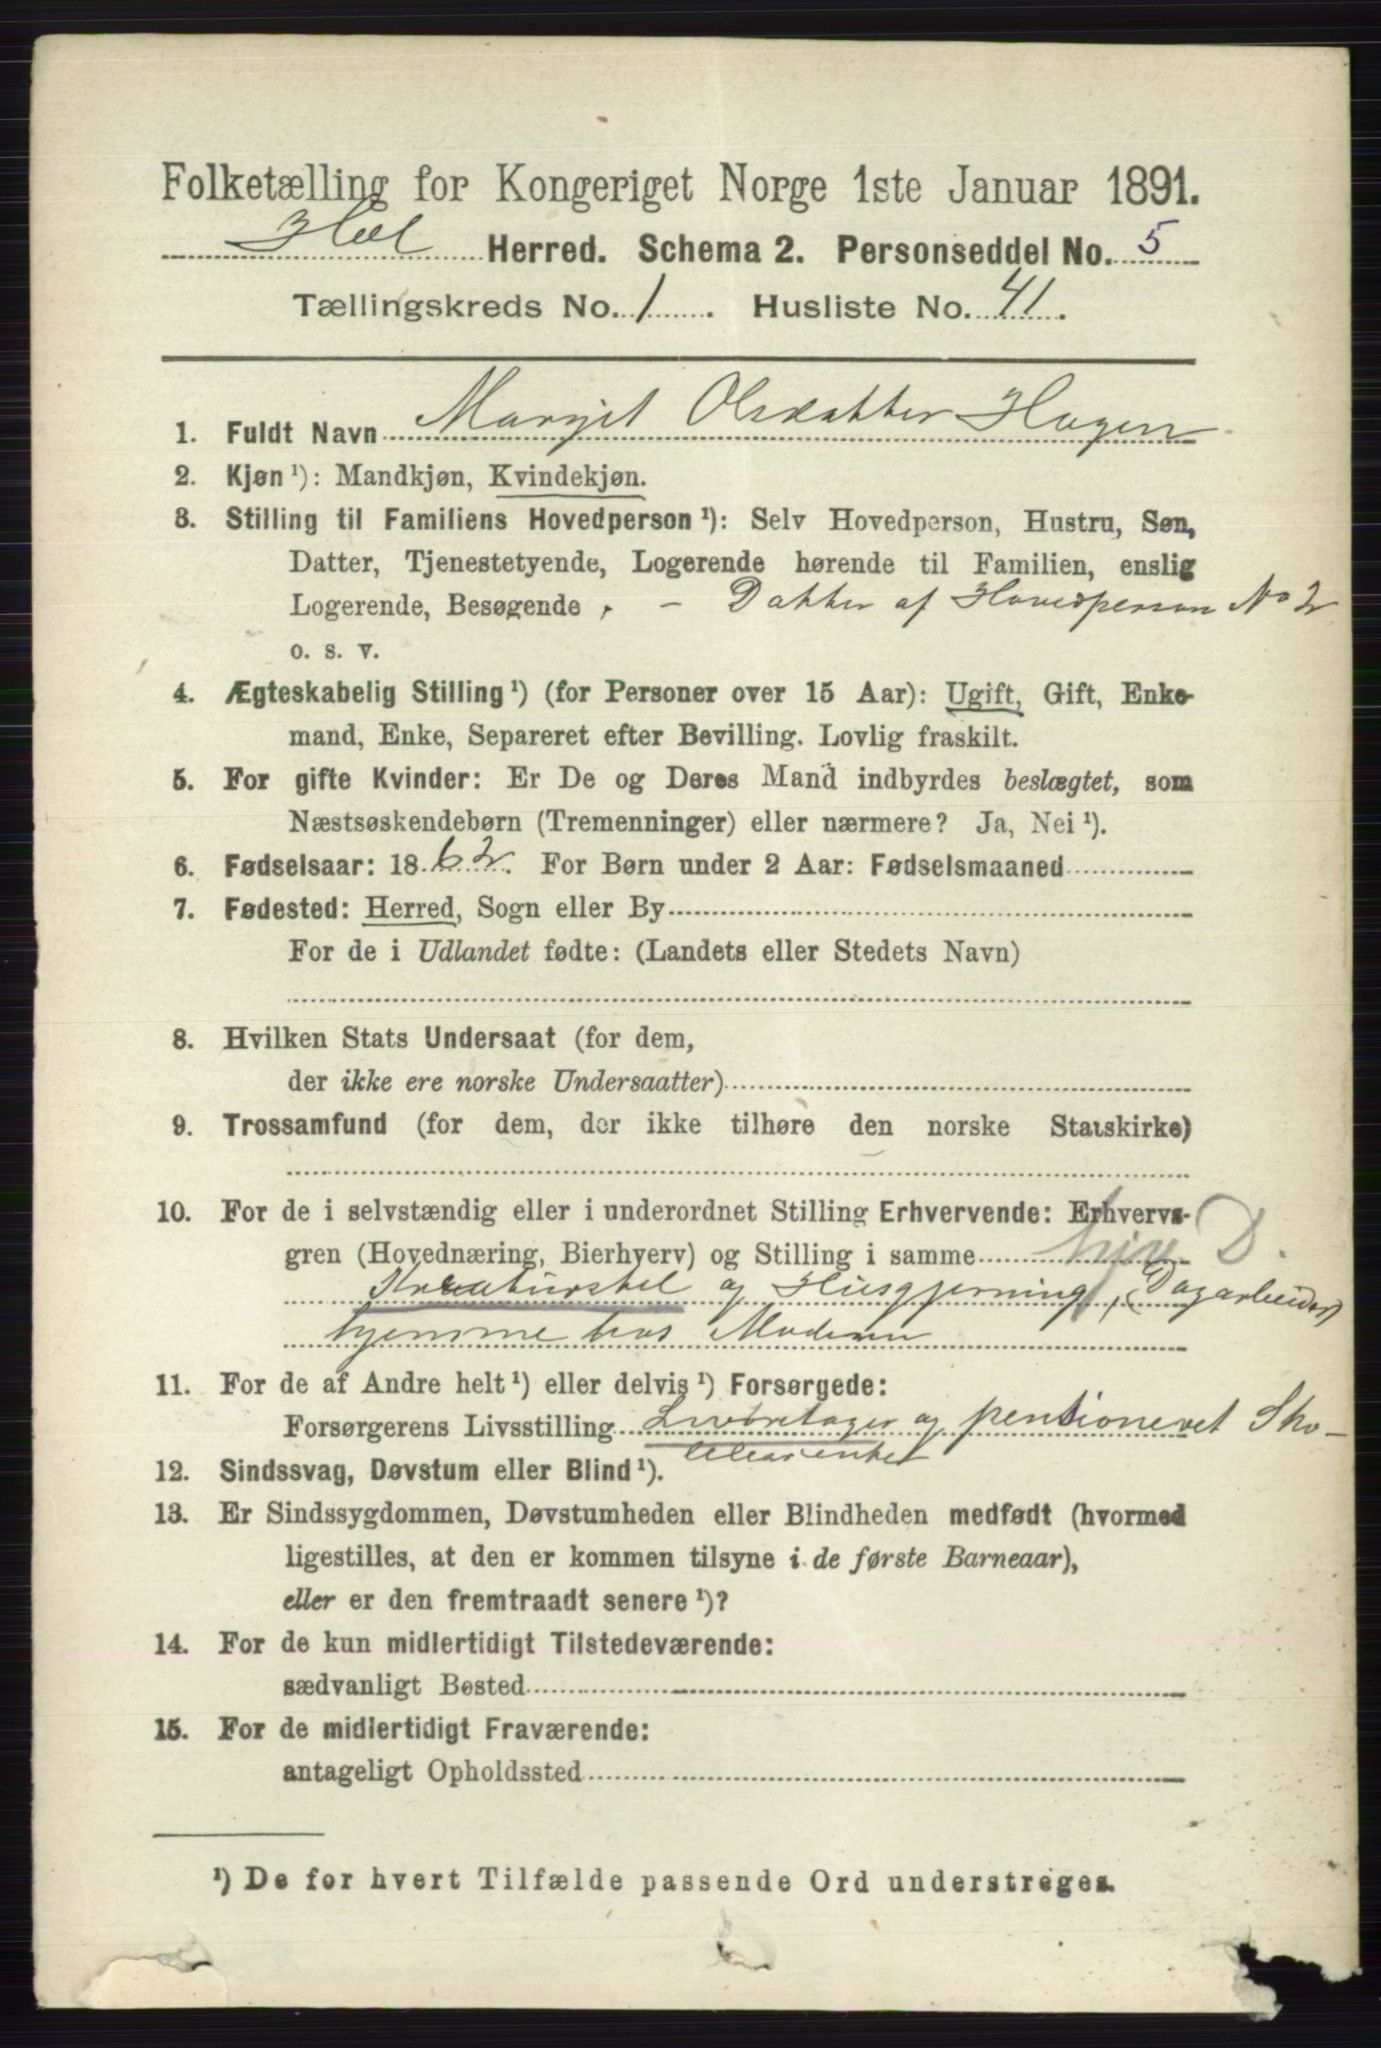 Folketælling for Kongeriget Norge 1ste Januar 1891.
Hol Herred. Schema 2. Personseddel No. 5
Tællingskreds No. 1. Husliste No. 41.
1. Fuldt Navn Margit Olsdatter Hagen
2. Kjøn ¹): Mandkjøn, Kvindekjøn.
3. Stilling til Familiens Hovedperson ¹): Selv Hovedperson, Hustru, Søn,
Datter, Tjenestetyende, Logerende hørende til Familien, enslig
Logerende, Besøgende, - Datter af Hovedperson No 2
o. s. v.
4. Ægteskabelig Stilling ¹) (for Personer over 15 Aar): Ugift, Gift, Enke-
mand, Enke, Separeret efter Bevilling. Lovlig fraskilt.
5. For gifte Kvinder: Er De og Deres Mand indbyrdes beslægtet, som
Næstsøskendebørn (Tremenninger) eller nærmere? Ja, Nei ¹).
6. Fødselsaar: 1862. For Børn under 2 Aar: Fødselsmaaned
7. Fødested: Herred, Sogn eller By
For de i Udlandet fødte: (Landets eller Stedets Navn)
8. Hvilken Stats Undersaat (for dem,
der ikke ere norske Undersaatter)
9. Trossamfund (for dem, der ikke tilhøre den norske Statskirke)
10. For de i selvstændig eller i underordnet Stilling Erhvervende: Erhvervs-
gren (Hovednæring, Bierhverv) og Stilling i samme D.
Kreaturstel og Husgjerning, (Dagarbeider)
hjemme hos Moderen
11. For de af Andre helt ¹) eller delvis ¹) Forsørgede:
Forsørgerens Livsstilling Livøretager og pensioneret Sko-
lelærerenke
12. Sindssvag, Døvstum eller Blind ¹).
13. Er Sindssygdommen, Døvstumheden eller Blindheden medfødt (hvormed
ligestilles, at den er kommen tilsyne i de første Barneaar),
eller er den fremtraadt senere ¹)?
14. For de kun midlertidigt Tilstedeværende:
sædvanligt Bosted
15. For de midlertidigt Fraværende:
antageligt Opholdssted
¹) De for hvert Tilfælde passende Ord understreges.